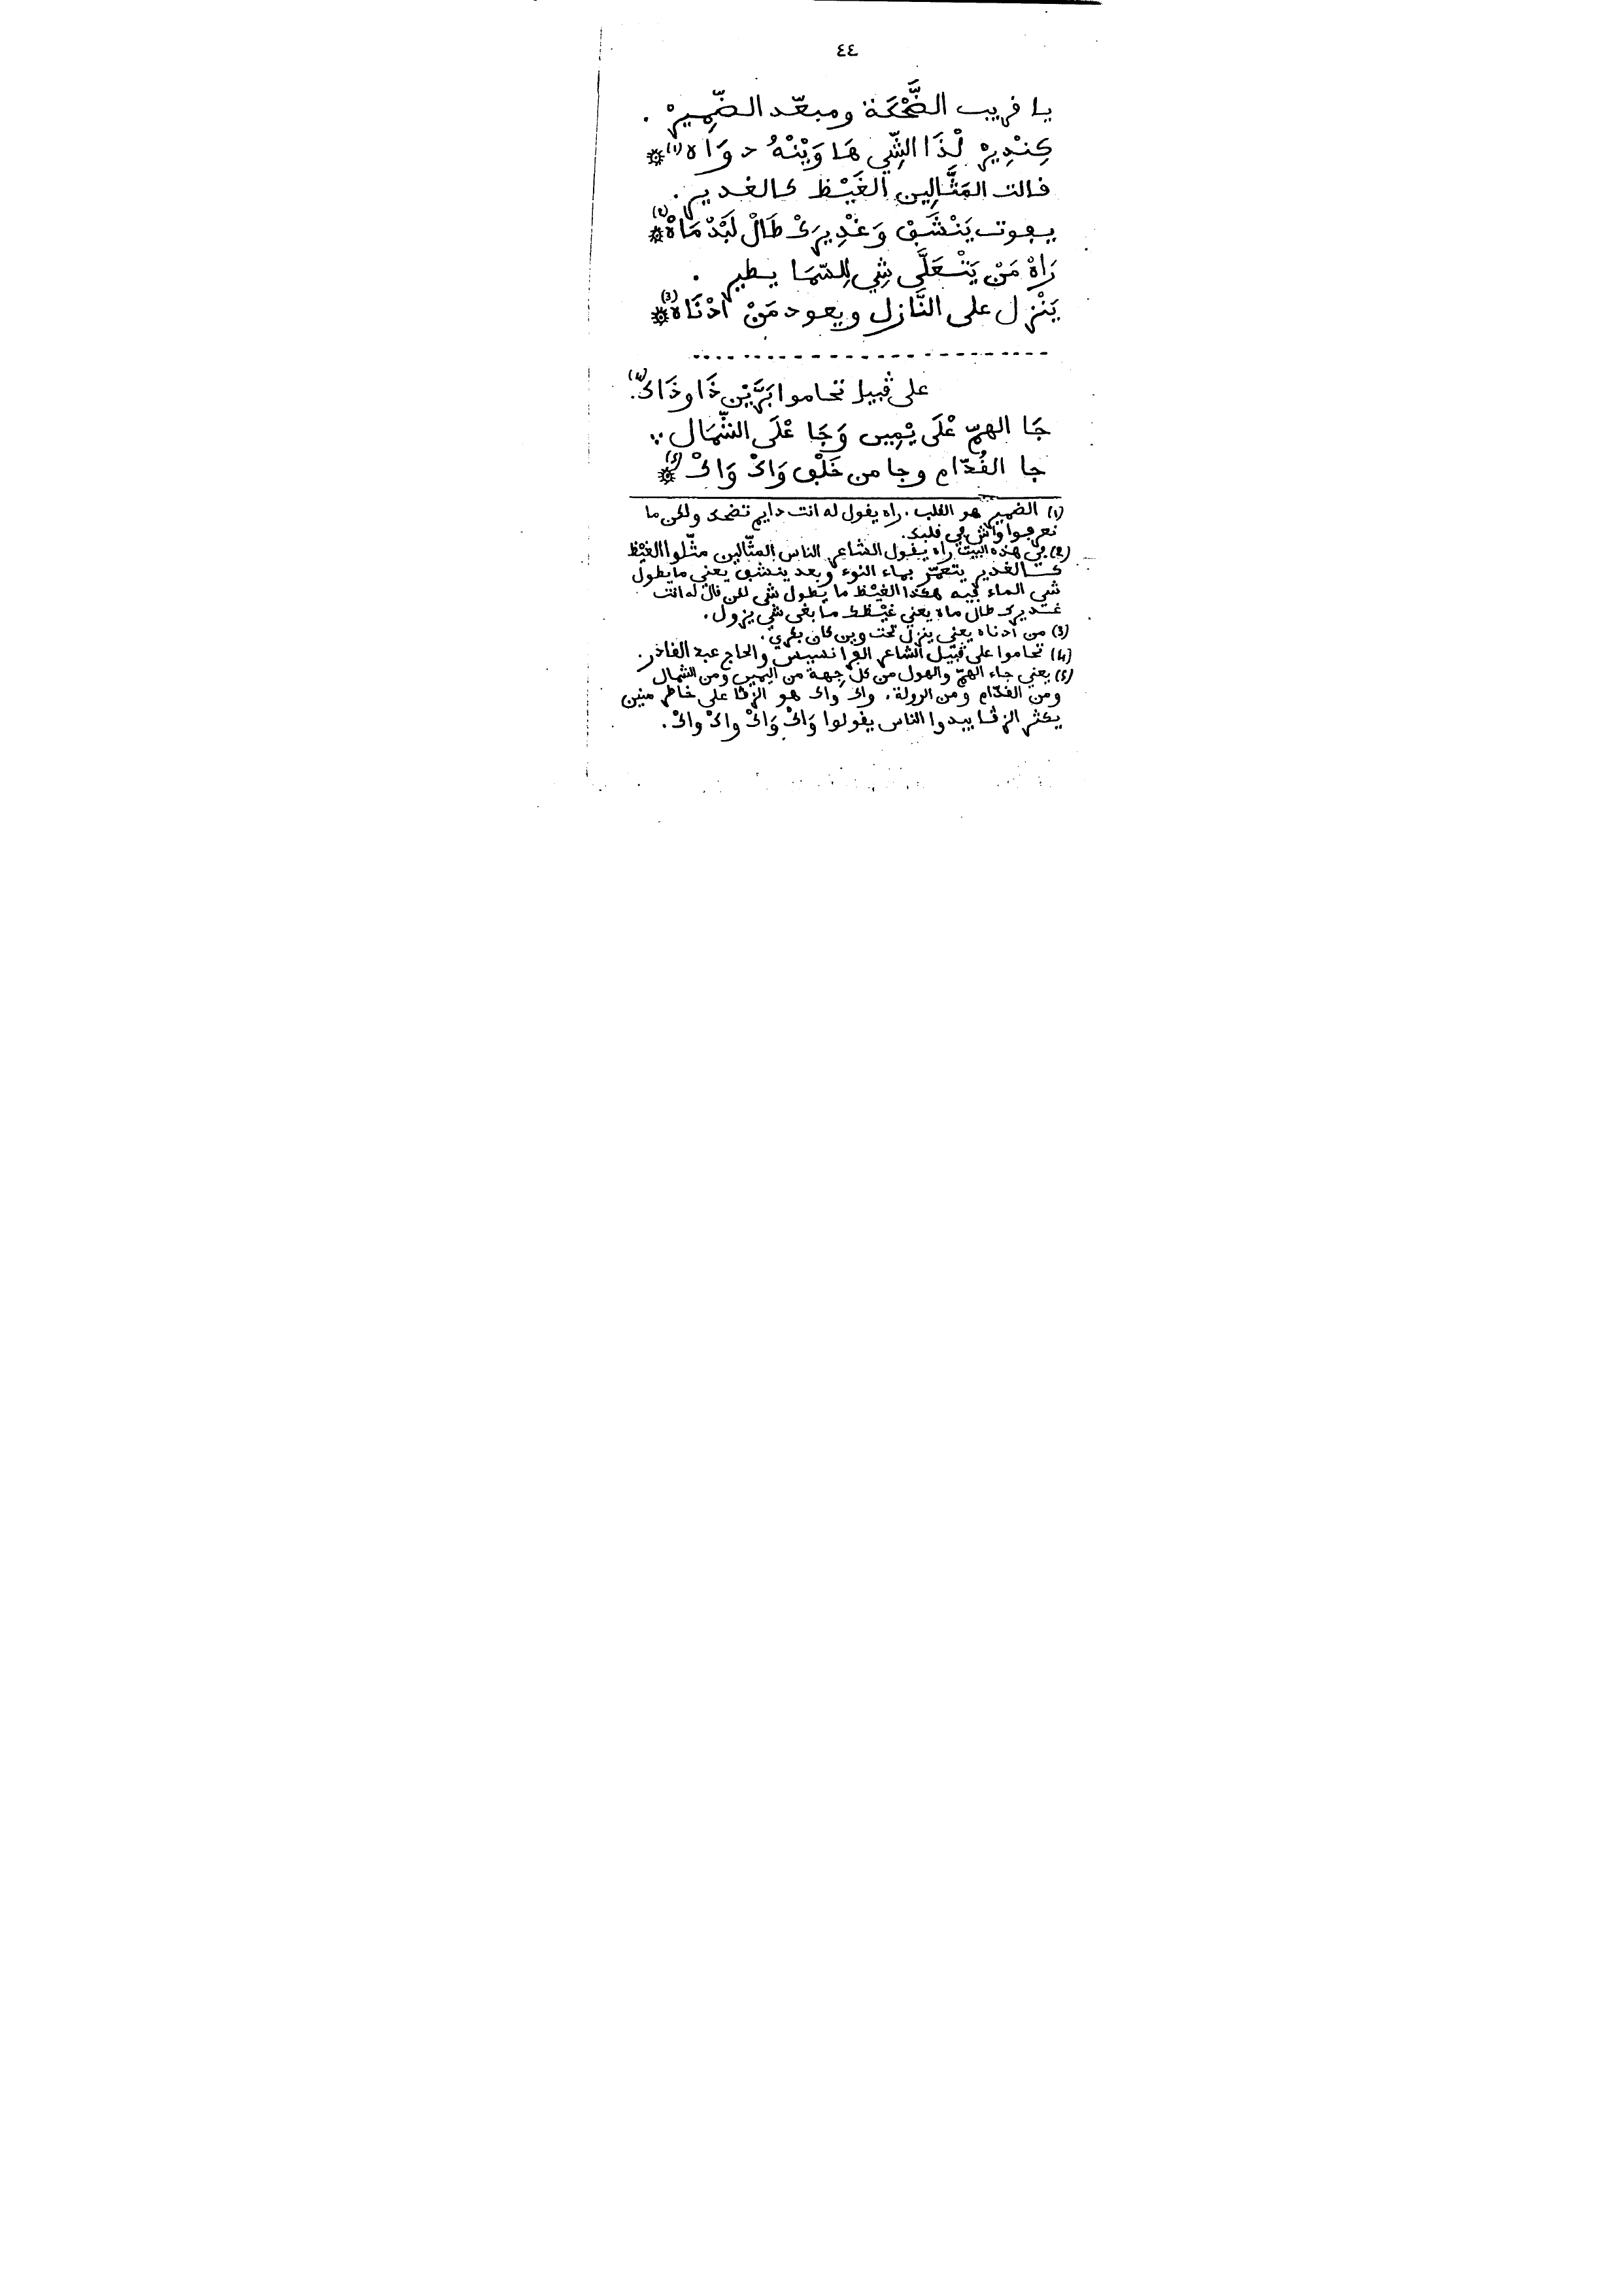 ٤٤
يا ڧريب الضَّحْكَة ومبعّد الضِّمِيرْ .
كِنْدِيرْ لْذَا الشِّي هَا وَيْنْهُ دوَاه (١) ۞
ڧالت المَثَّالِين الغَيْظ كالغدير .
يڢوت يَنْشَڢْ وَغْدِيرَكْ طَالْ لَبَدْ مَاهْ (٢) ۞
رَاهْ مَنْ يَتْعَلَّى شِي لِلسّمَا يطير .
يَنْزل على النَّازل ويعود مَنْ ادْنَاه (3) ۞
على ڨبيل تحاموا بَرَّيْن ذَا وذَاكْ (4) .
جَا الهمّ عْلَى يْمِين وَجَا عْلَى الشّمَال ∴
جا الڧُدّام وجا من خَلْڢ وَاكْ وَاكْ (5) ۞
(١) الضمير هو الڧلب . راه يڧول له انت دايم تضحك ولكن ما
نعرڢوا واش ڢي ڧلبك .
(٢) ڢي هذه البيت راه يڧول الشاعر الناس المثّالين مثّلوا الغيْظ
كالغدير يتعمّر بماء النوء وبعد ينشڢ يعني ما يطول
شي الماء ڢيه هكذا الغيْظ ما يطول شي لكن ڧال له انت
غديرك طال ماه يعني غيْظك ما بغى شي يزول .
(3) من ادناه يعني ينزل تحت وين كان بكري .
(4) تحاموا على ڨبيل الشاعر الڢرانسيس والحاج عبد الڧادر .
(5) يعني جاء الهمّ والهول من كل جِهة من اليمين ومن الشمال
ومن الڧدّام ومن الرولة . واك واك هو الزڨا على خاطر منين
يكثر الزڨا يبدوا الناس يڧولوا وَاكْ وَاكْ واكْ واكْ .